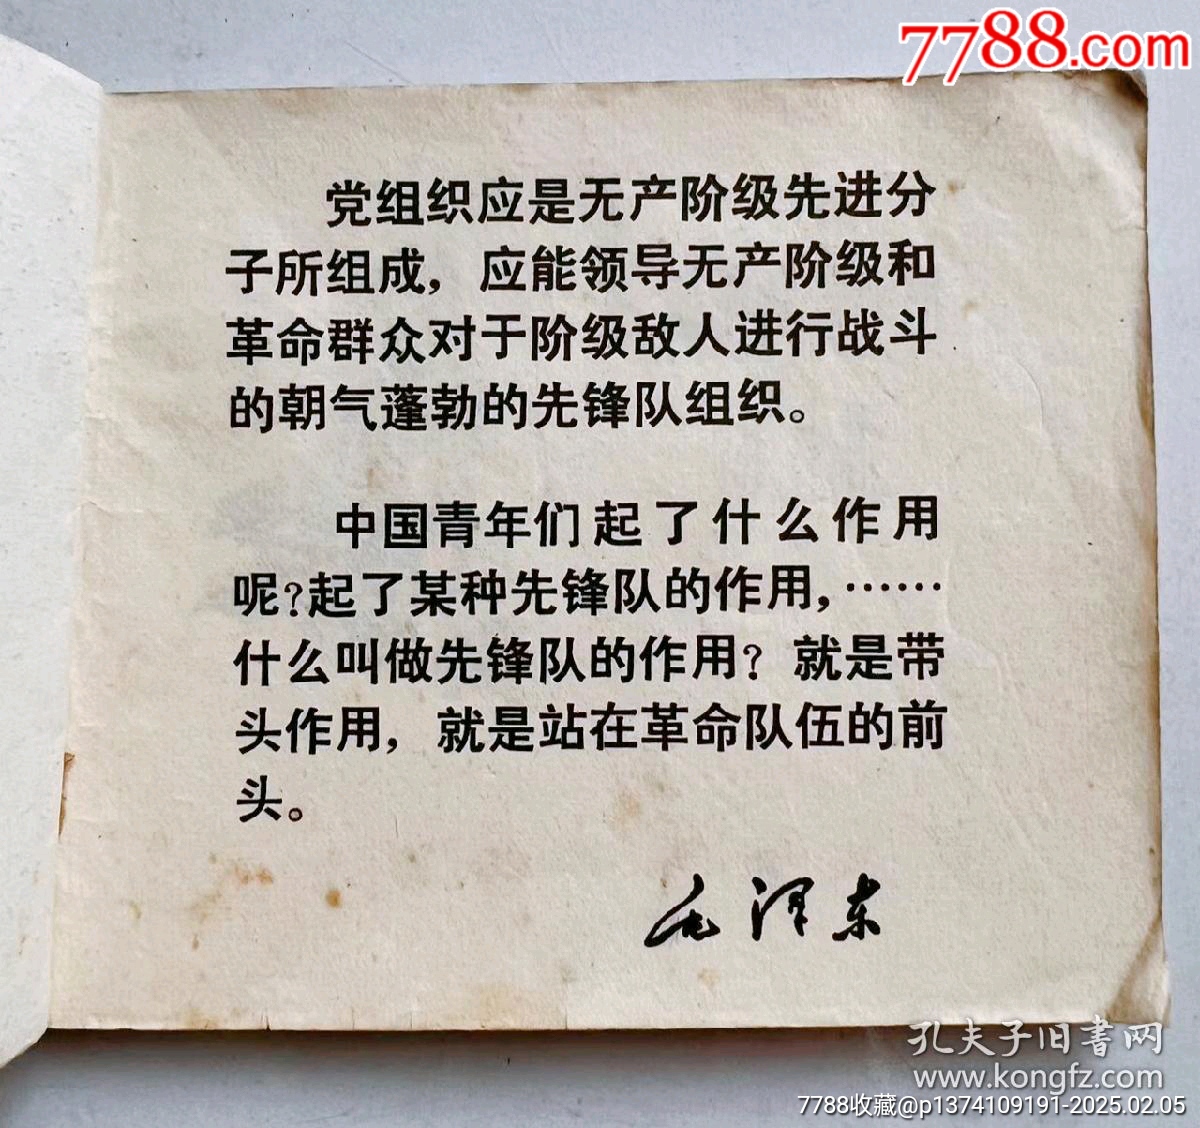 7788.com
党组织应是无产阶级先进分
子所组成，应能领导无产阶级和
革命群众对于阶级敌人进行战斗
的朝气蓬勃的先锋队组织。
中国青年们起了什么作用
呢？起了某种先锋队的作用，……
什么叫做先锋队的作用？就是带
头作用，就是站在革命队伍的前
头。
毛泽东
孔夫子旧书网
www.kongfz.com
7788收藏@p1374109191-2025.02.05